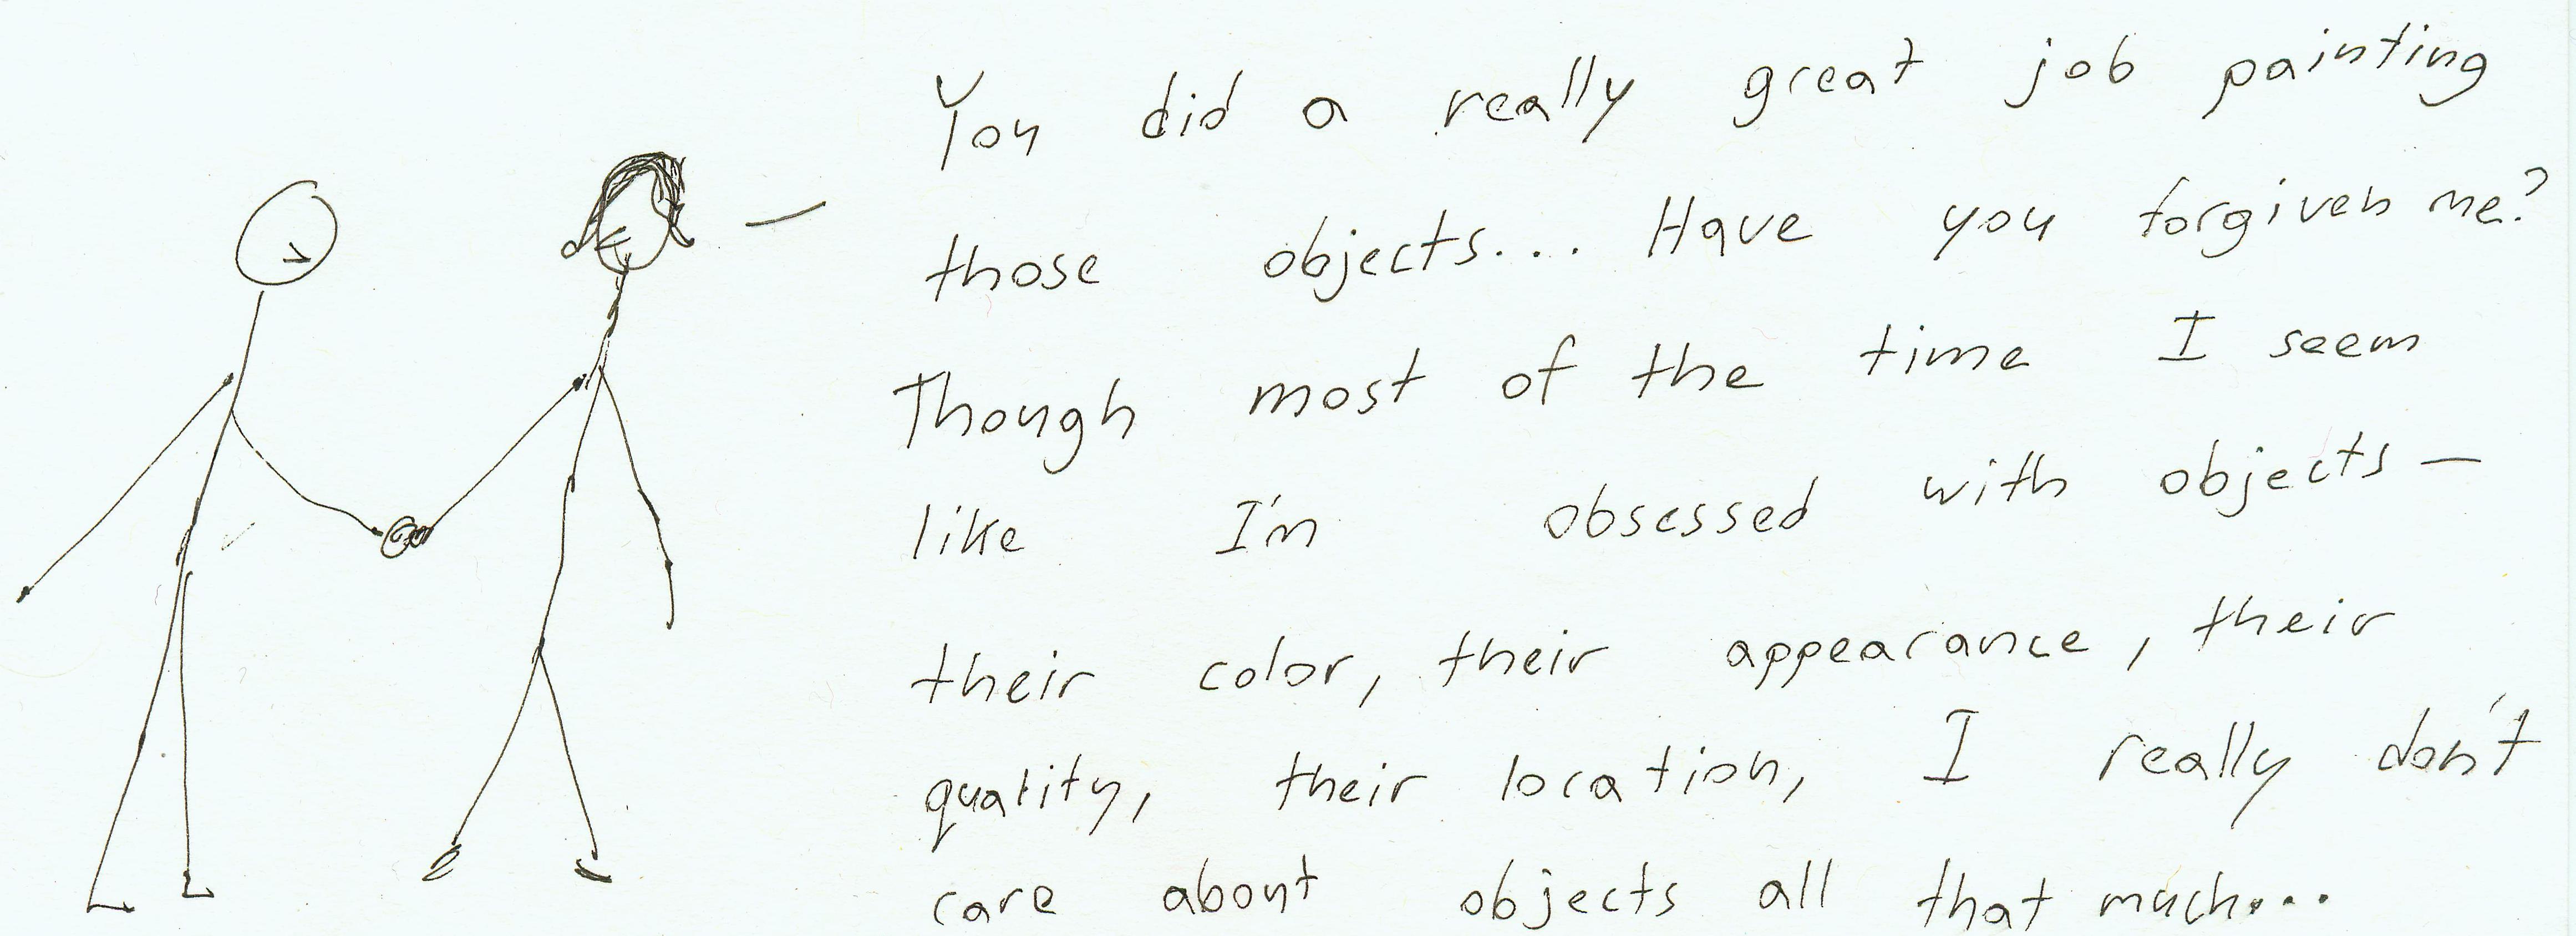 You did a really great job painting
those objects... Have you forgiven me?
Though most of the time I seem
like I'm obsessed with objects —
their color, their appearance, their
quality, their location, I really don't
care about objects all that much...